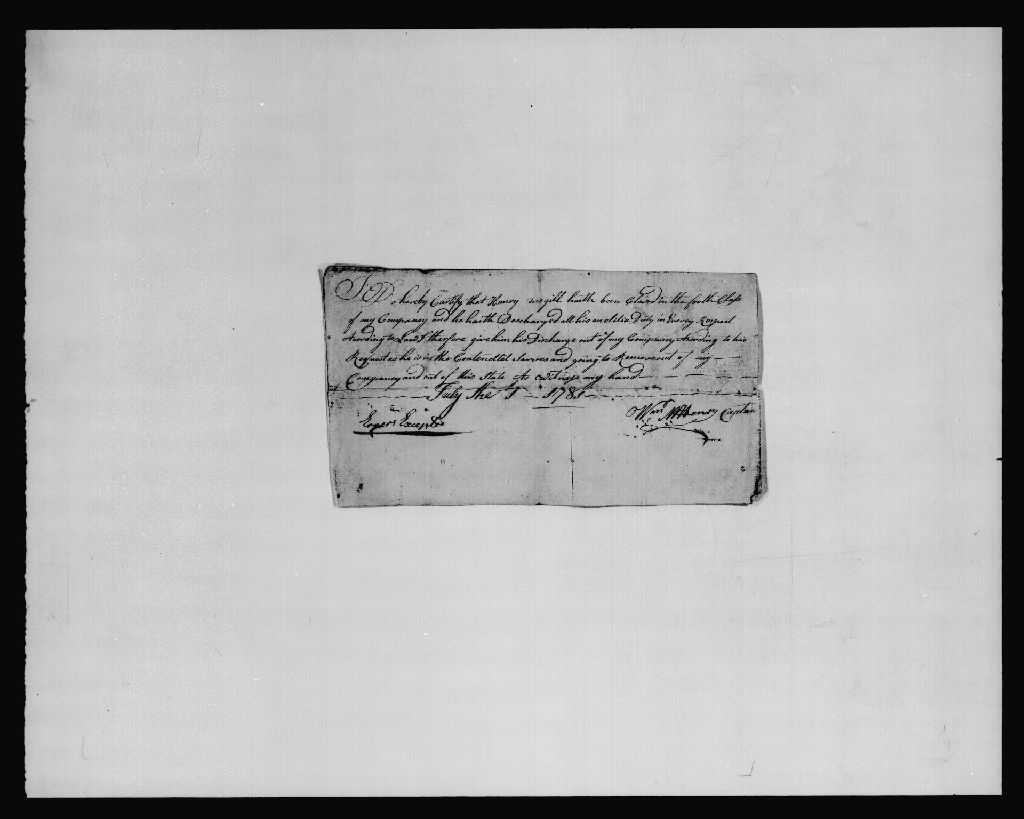 I Do hereby Certify that Henery mcgill haith been Classd in the fourth Class
of my Companey and he haith Descharged all his melitia Duty in Every Respect
Acording to Law I therfore give him his Discharge out of my Company Acording to his
Request as he is in the Contenottal Servies and going to Remove out of my
Companey and out of this State As witness my hand
July the 1 1781
Wm McHenery Capten
Erors Excepted